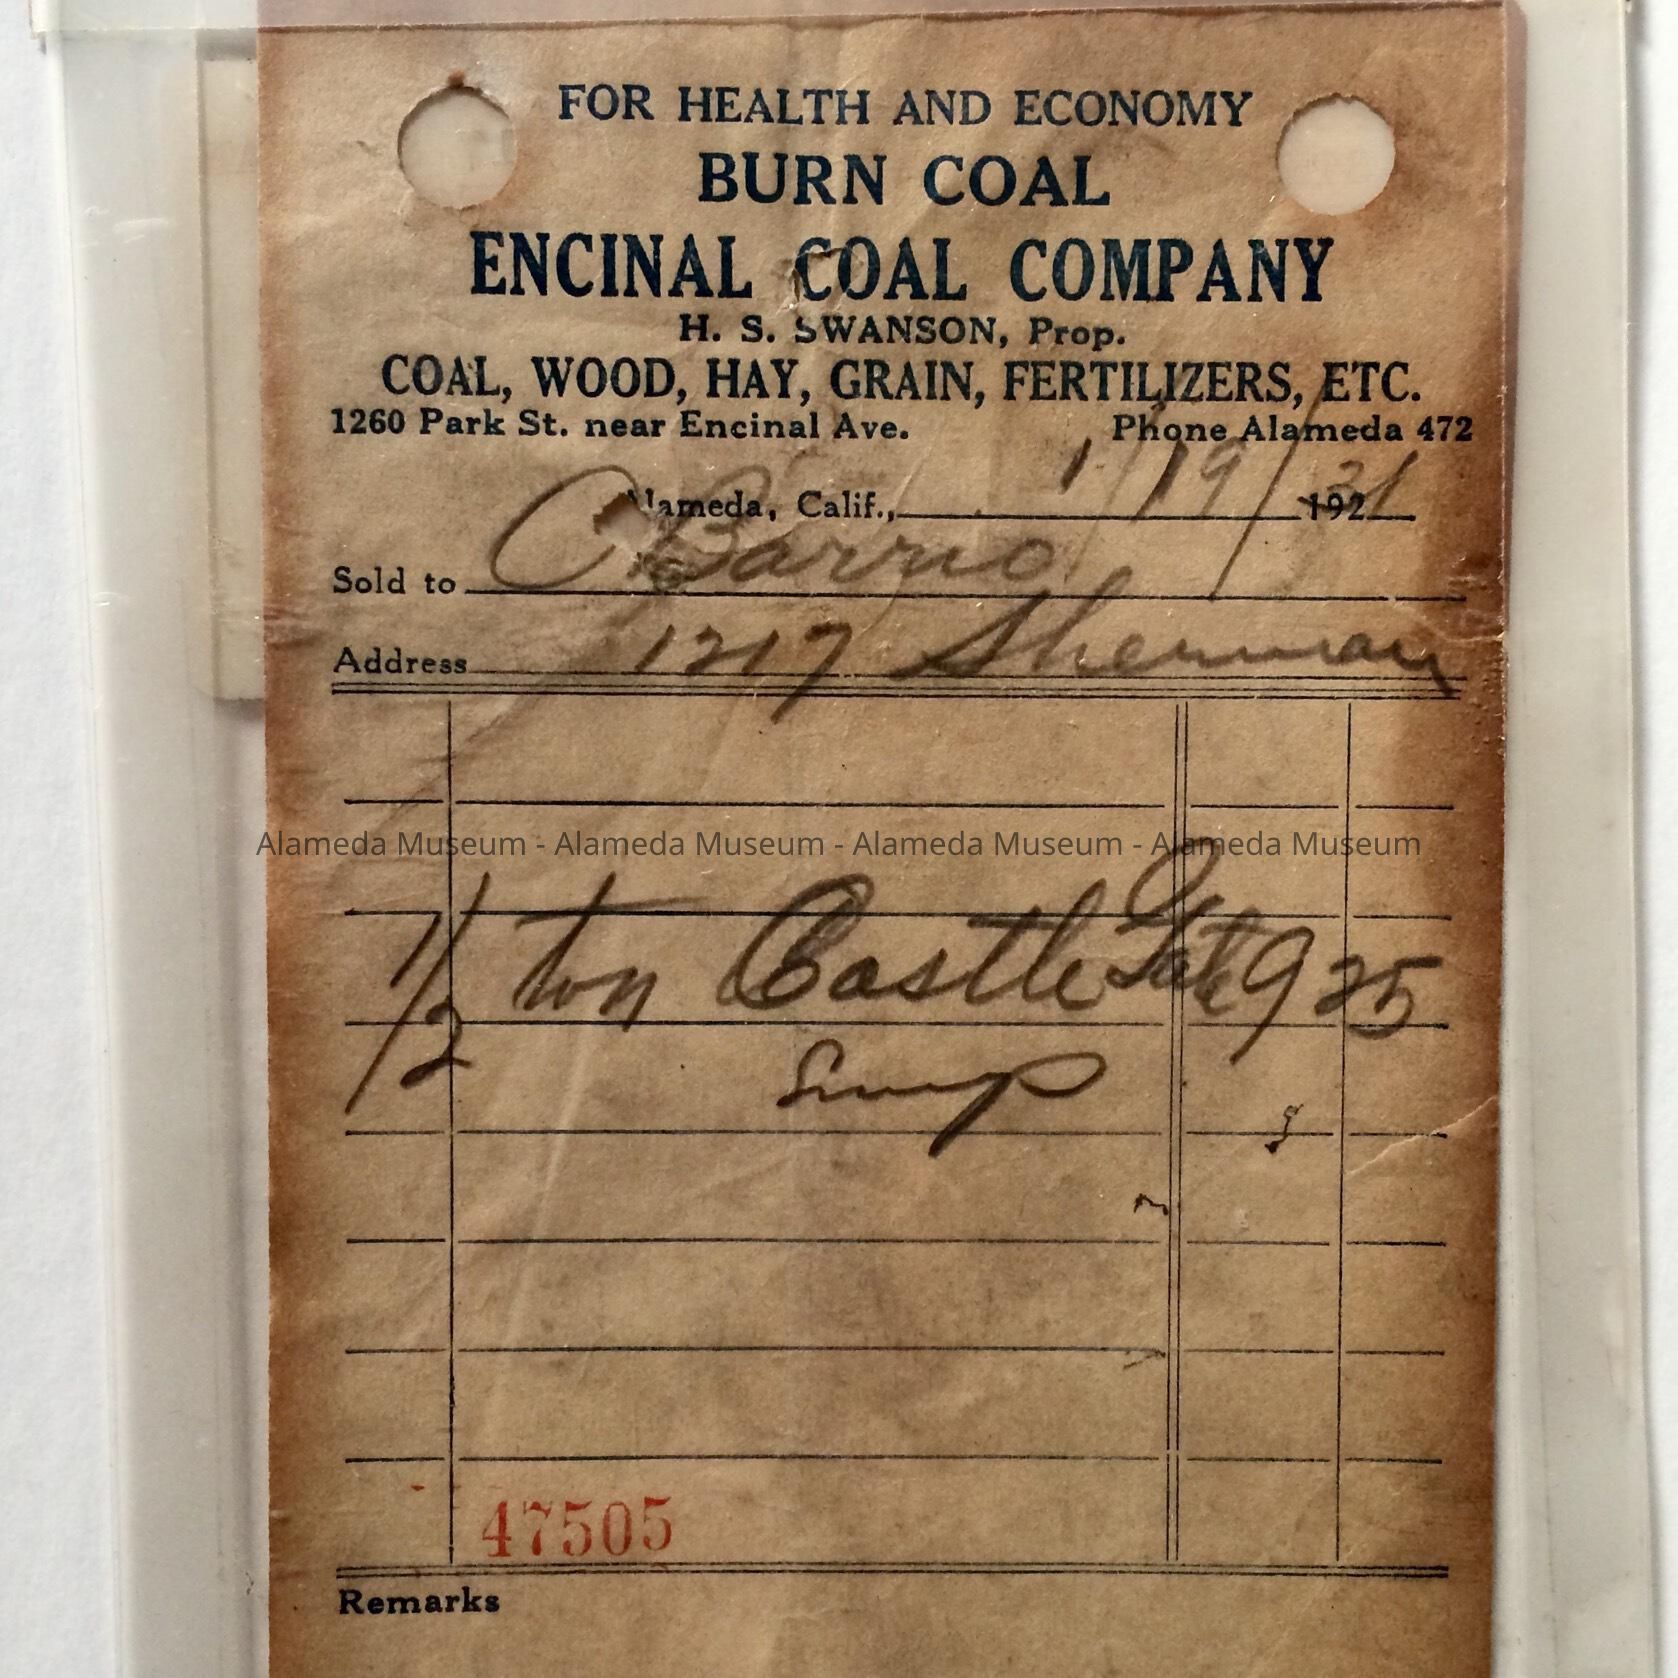 FOR HEALTH AND ECONOMY
BURN COAL
ENCINAL COAL COMPANY
H. S. SWANSON, Prop.
COAL, WOOD, HAY, GRAIN, FERTILIZERS, ETC.
1260 Park St. near Encinal Ave. Phone Alameda 472
Alameda, Calif., 1/19/31 192
Sold to C Barrio
Address 1217 Sherman
Alameda Museum - Alameda Museum - Alameda Museum - Alameda Museum
1/2 ton Castle Gate 9 25
47505
Remarks